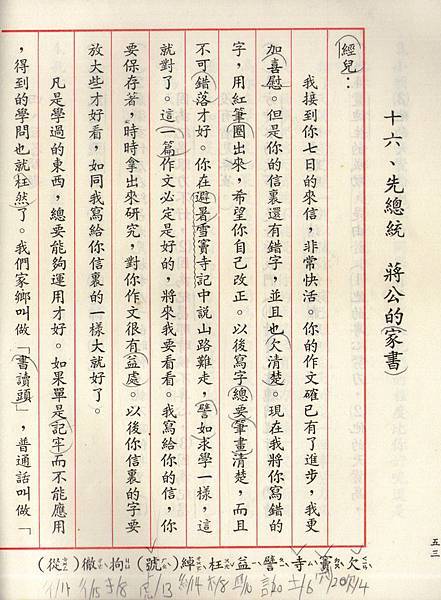 十六、先總統　蔣公的家書
經兒：
我接到你七日的來信，非常快活。你的作文確已有了進步，我更
加喜慰。但是你的信裏還有錯字，並且也欠清楚。現在我將你寫錯的
字，用紅筆圈出來，希望你自己改正。以後寫字總要筆畫清楚，而且
不可錯落才好。你在避暑雪竇寺記中說山路難走，譬如求學一樣，這
就對了。這一篇作文必定是好的，將來我要看看。我寫給你的信，你
要保存著，時時拿出來研究，對你作文很有益處。以後你信裏的字要
放大些才好看，如同我寫給你信裏的一樣大就好了。
凡是學過的東西，總要能夠運用才好。如果單是記牢而不能應用
，得到的學問也就枉然了。我們家鄉叫做「書讀頭」，普通話叫做「
五三
欠竇寺譬益枉綽(號)拘徹(從)